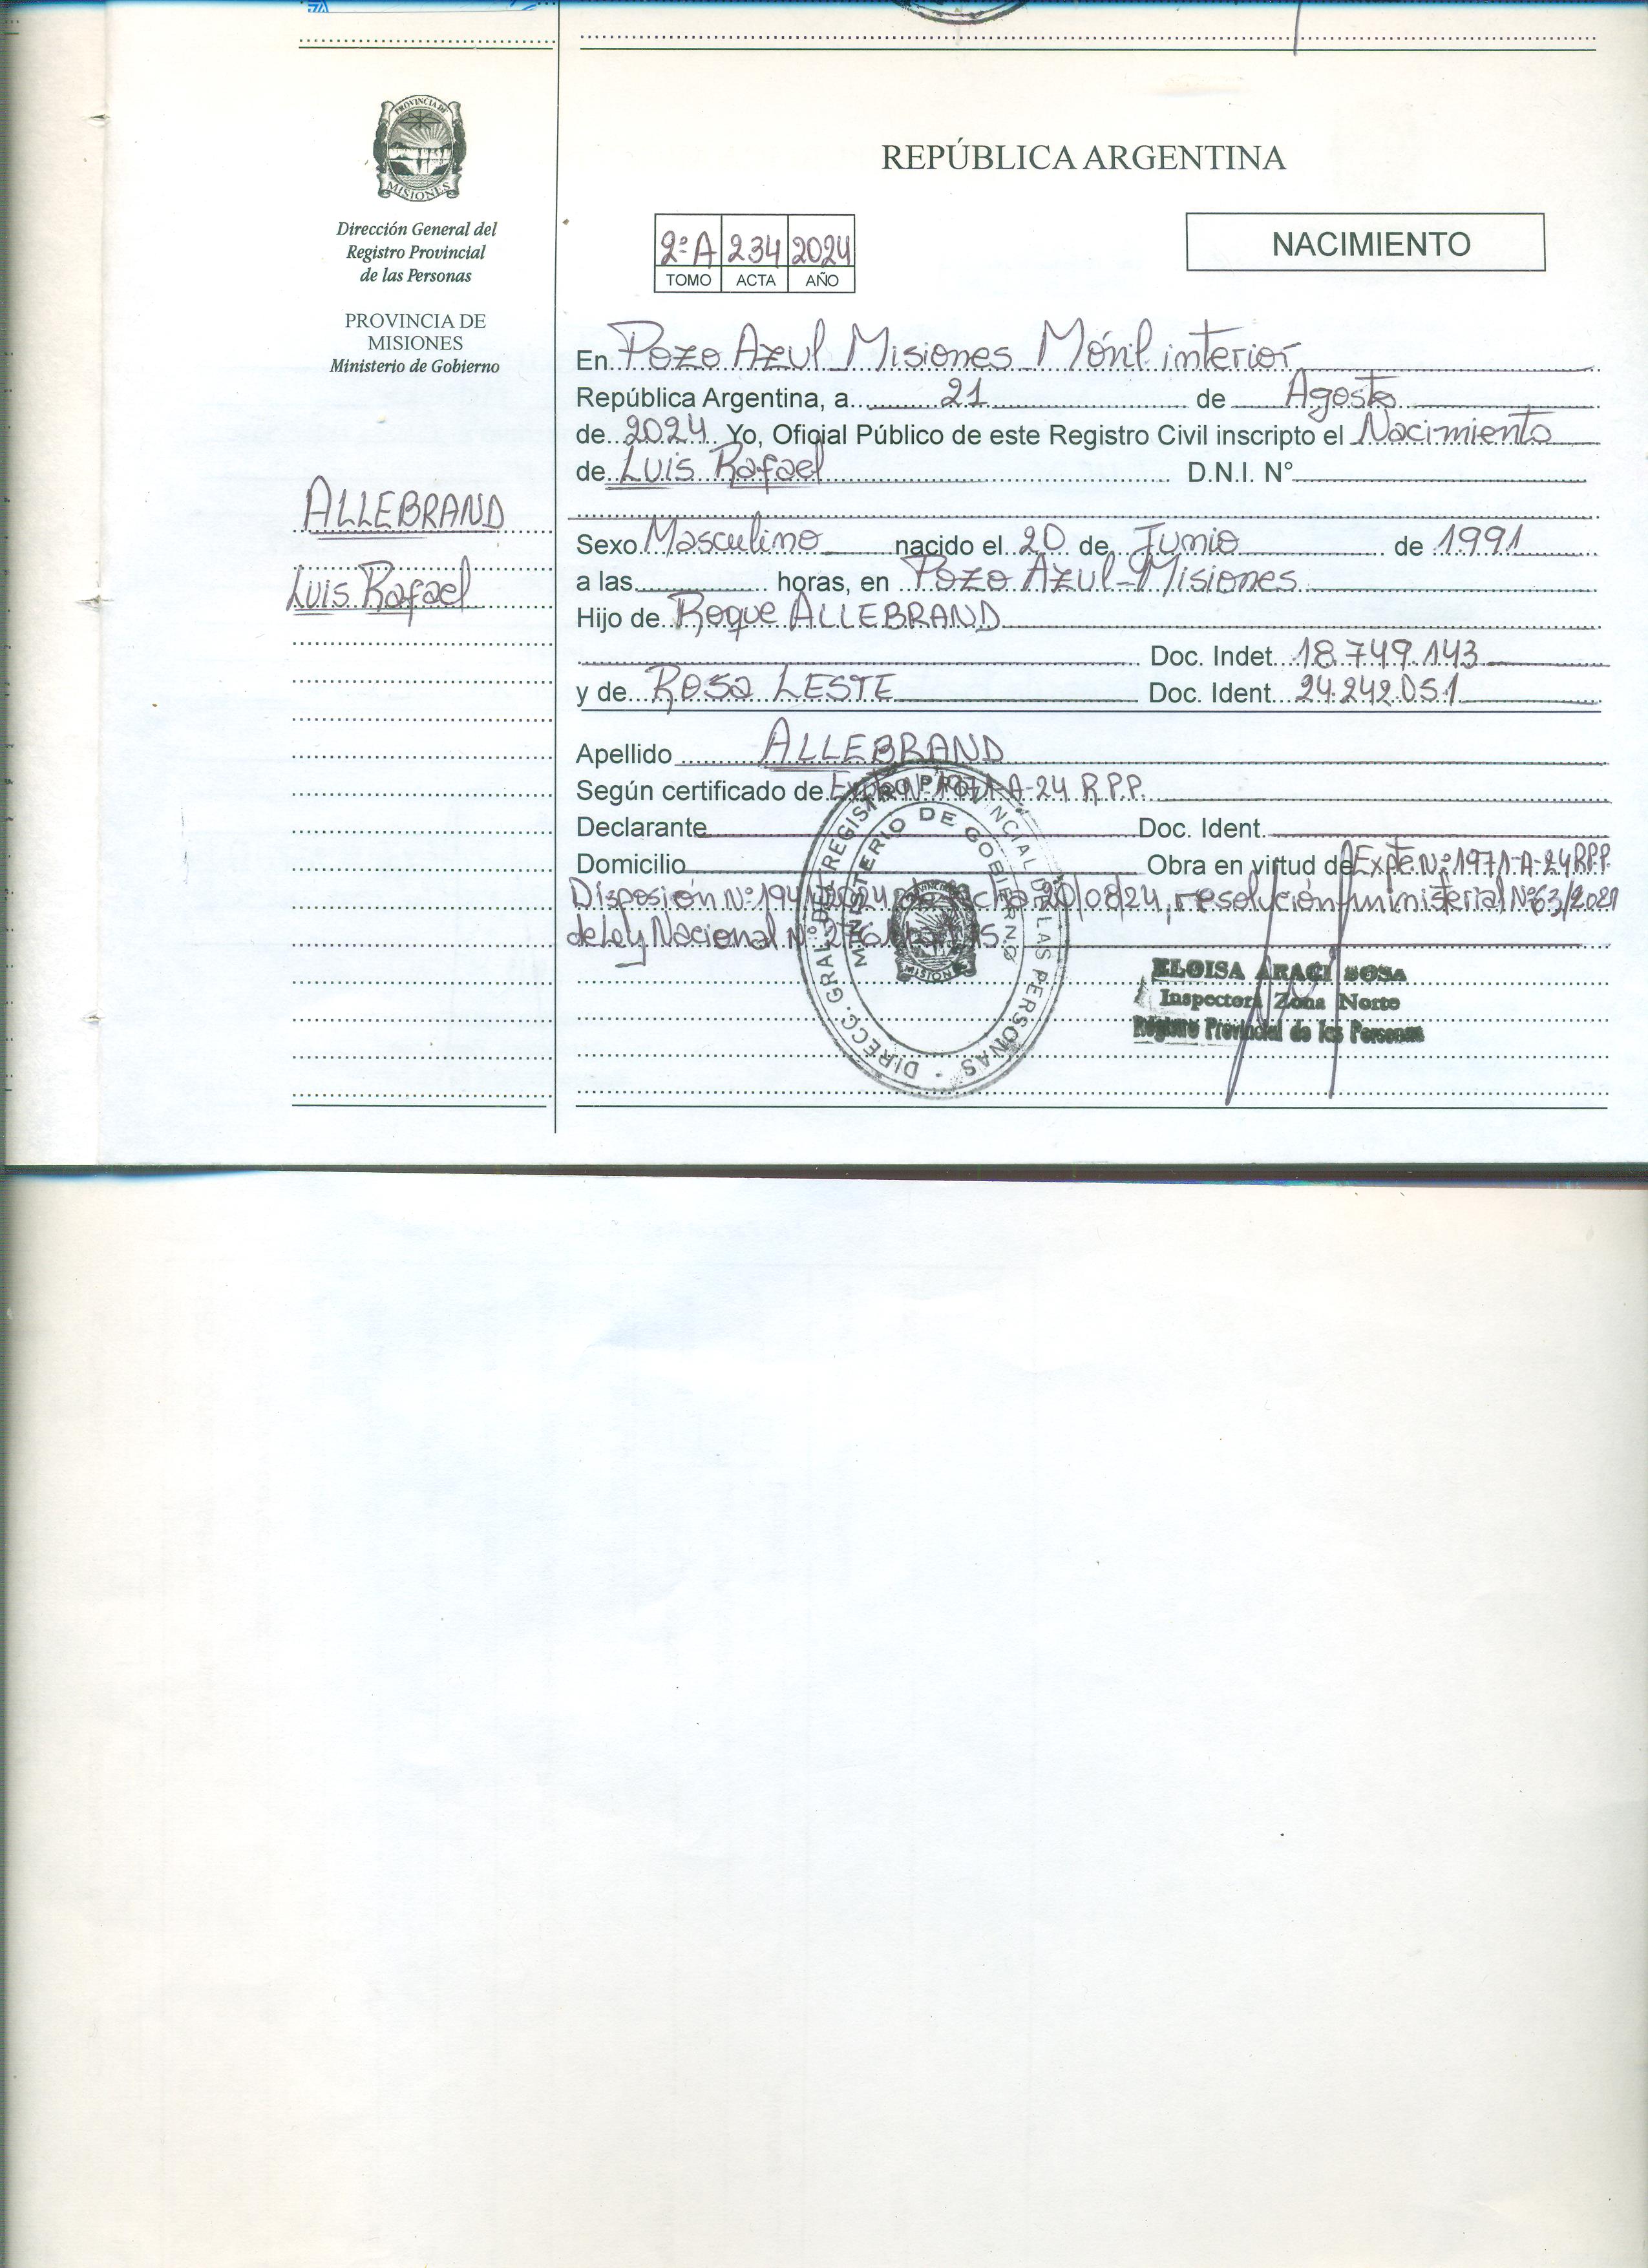 PROVINCIA DE
MISIONES
Dirección General del
Registro Provincial
de las Personas
PROVINCIA DE
MISIONES
Ministerio de Gobierno
ALLEBRAND
Luis Rafael
REPÚBLICA ARGENTINA
2º A 234 2024
TOMO ACTA AÑO
NACIMIENTO
En Pozo Azul Misiones Móvil interior
República Argentina, a 21 de Agosto
de 2024 Yo, Oficial Público de este Registro Civil inscripto el Nacimiento
de Luis Rafael D.N.I. N°
Sexo Masculino nacido el 20 de Junio de 1991
a las horas, en Pozo Azul-Misiones
Hijo de Roque ALLEBRAND
Doc. Indet. 18.749.143
y de Rosa LESTE Doc. Ident. 24.242.051
Apellido ALLEBRAND
Según certificado de Expte Nº 1971-A-24 R.P.P.
Declarante Doc. Ident.
Domicilio Obra en virtud de Expte.Nº:1971-A-24 R.P.P.
Disposión Nº:194 /2024 de fecha 20/08/24, resolución ministerial Nº63/2021
de Ley Nacional Nº
DIRECC. GRAL. DEL REGISTRO PROVINCIAL DE LAS PERSONAS
MINISTERIO DE GOBIERNO
MISIONES
ELOISA ARACI SOSA
Inspectora Zona Norte
Registro Provincial de las Personas